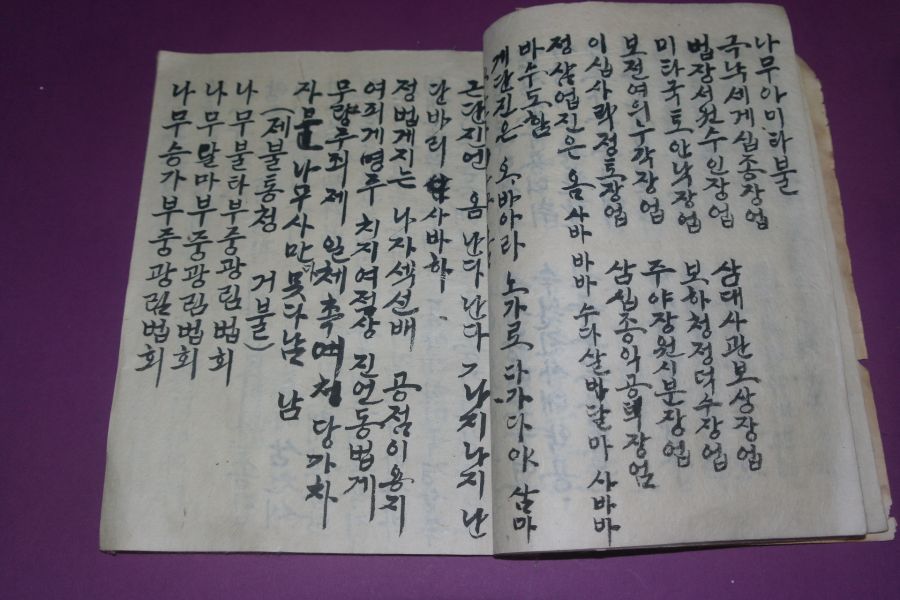 나무아미타불
극낙세게십종장업
법장서원수인장업 삼대사관보상장업
미타국토안낙장업 보하청정덕수장업
보전여위누각장업 주야장원시분장업
이십사락정토장업 삼십종의공덕장업
정삼업진은 옴 사바바바 수다살바달마 사바바
바수도함
개단진은 옴 바아라 노가로 다가다야 삼마
근단진엔 옴 난다 난다 나지나지 난
단바리 사바하
정법게지는 나자색선배 공점이용지
여죄게명루 치지여점상 진언동법게
무량주죄제 일체촉여체 당가차
자문 나무사만다못다남 남
(제불통청 거불)
나무불타부중광림법회
나무달마부중광림법회
나무승가부중광림법회